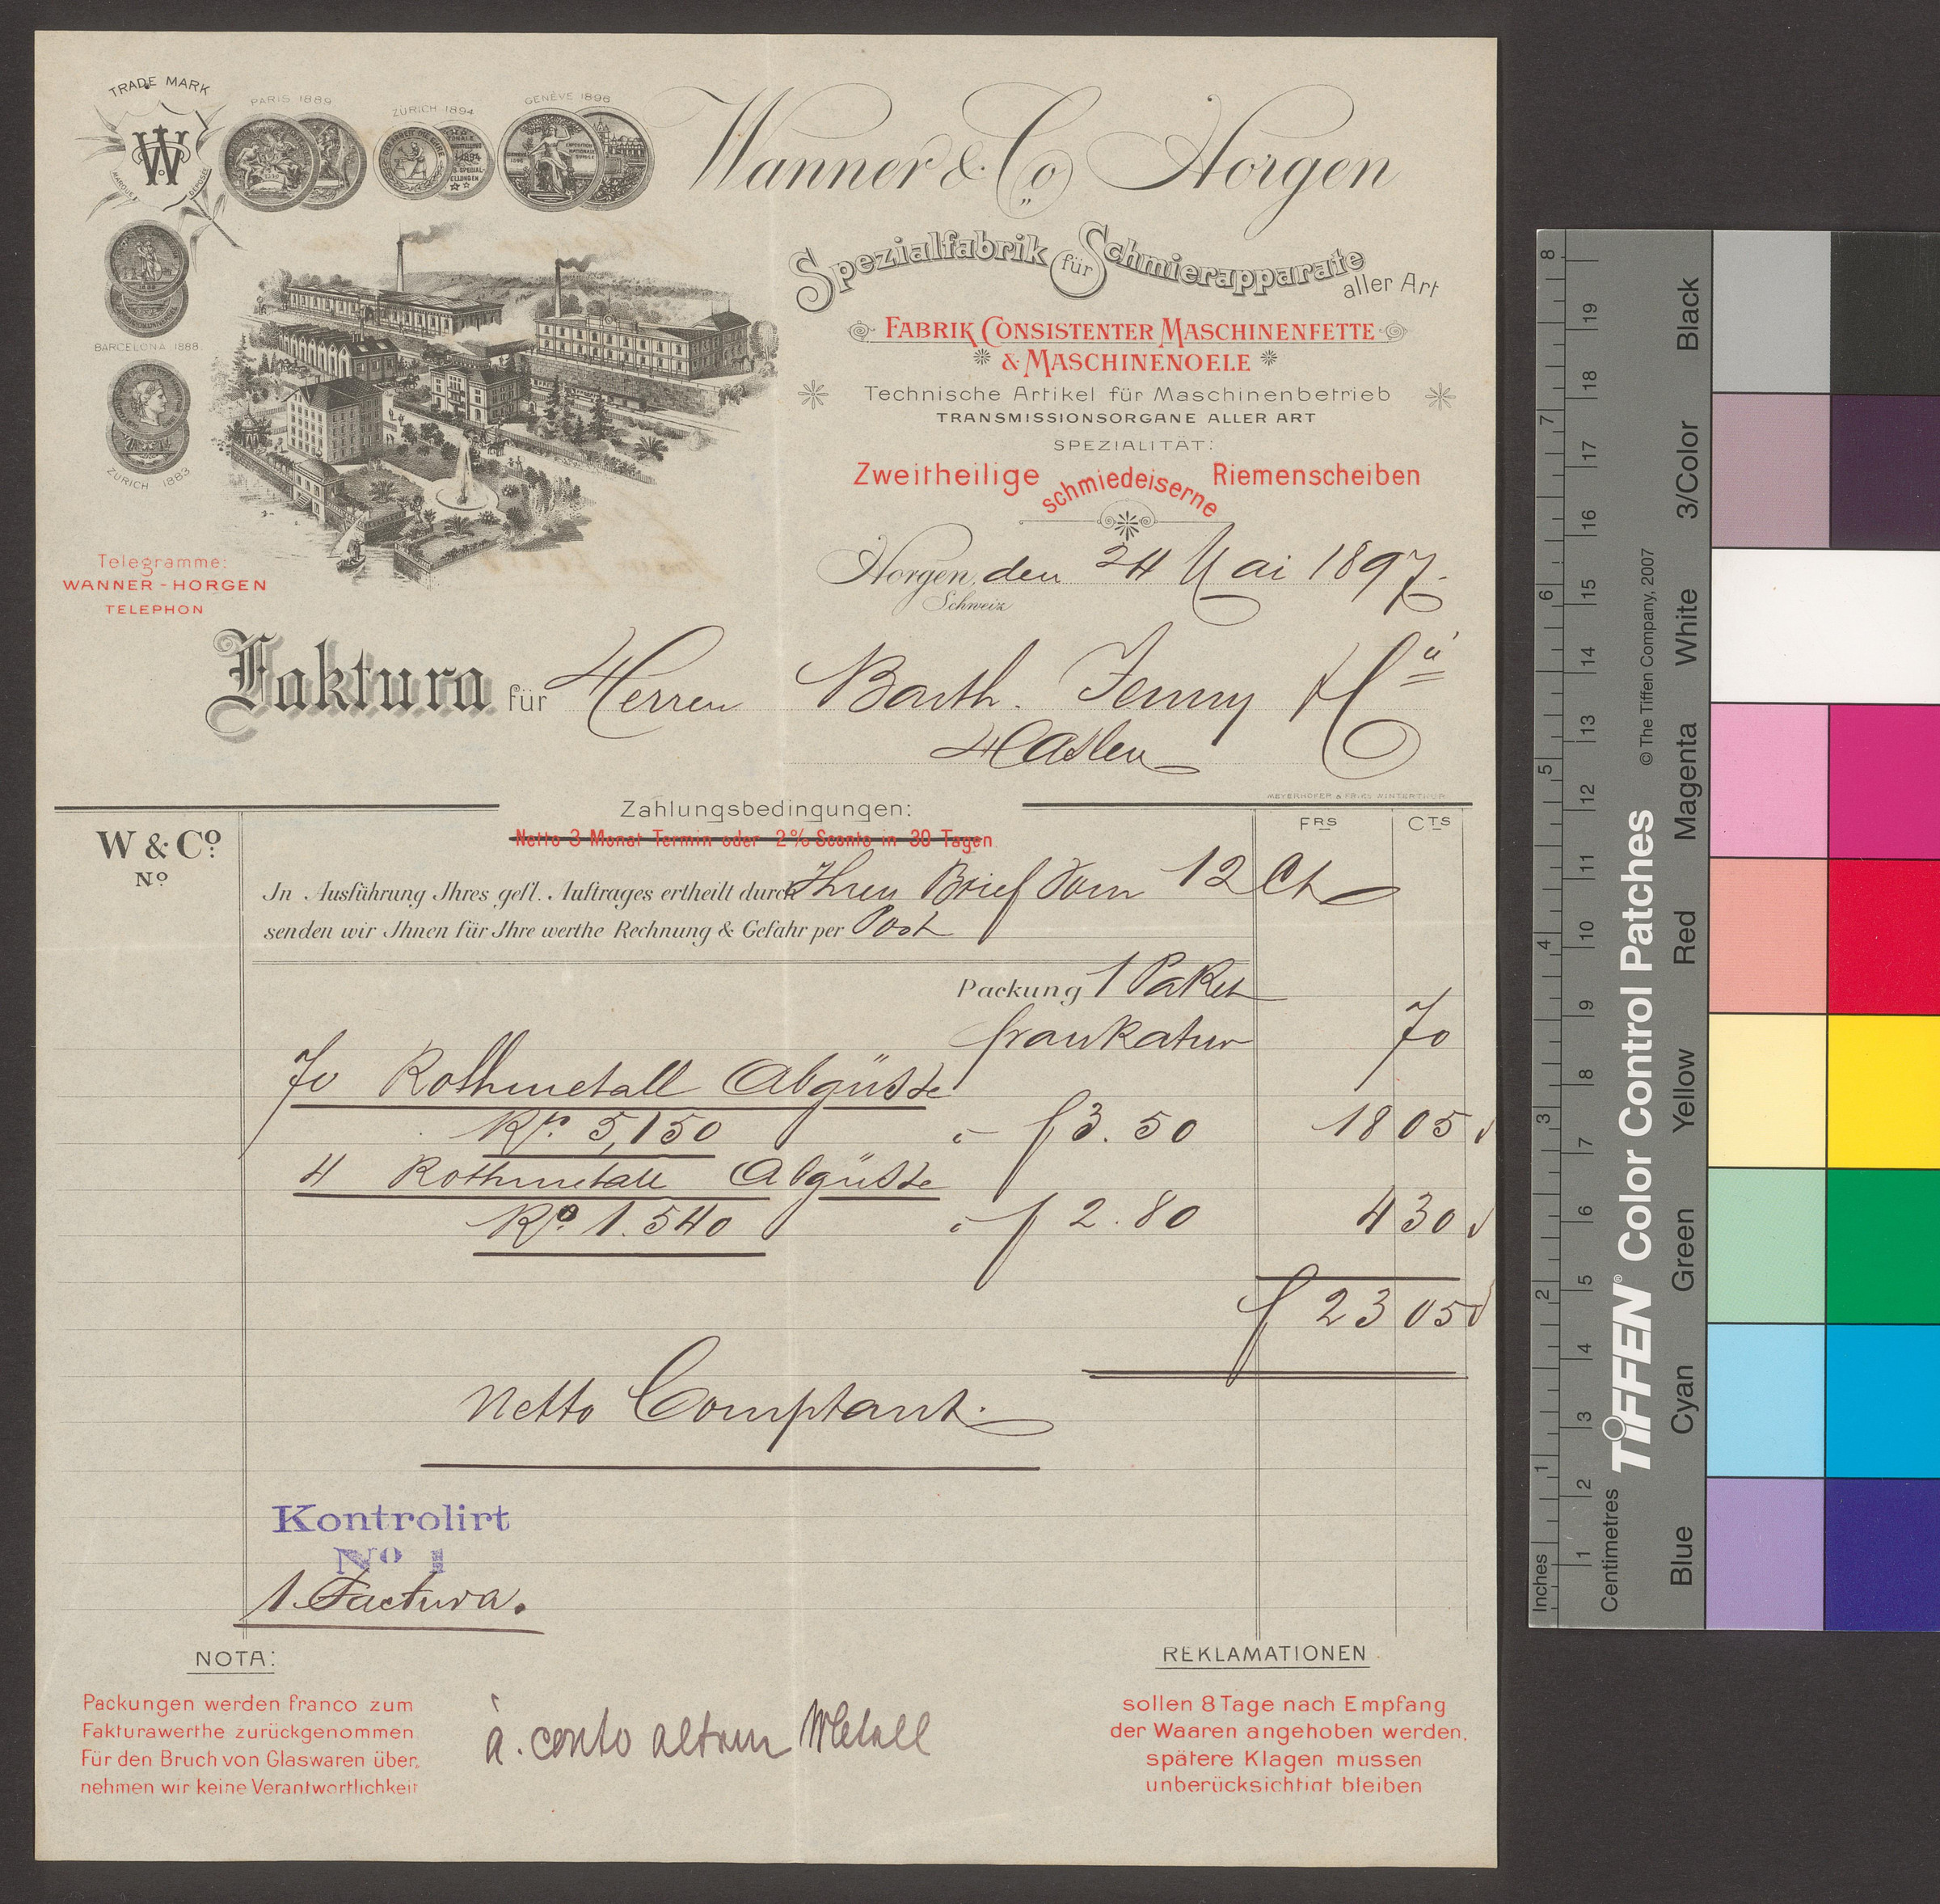 TRADE MARK
W
MARQUE DEPOSÉE
PARIS 1889
ZÜRICH 1894
GENÈVE 1896
BARCELONA 1888.
ZÜRICH 1883
Wanner & Co Horgen
Spezialfabrik für Schmierapparate
aller Art
FABRIK CONSISTENTER MASCHINENFETTE
& MASCHINENOELE
Technische Artikel für Maschinenbetrieb
TRANSMISSIONSORGANE ALLER ART
SPEZIALITÄT:
Zweitheilige schmiedeiserne Riemenscheiben
Telegramme:
WANNER-HORGEN
TELEPHON
Horgen, den 24 Mai 1897.
Schweiz
Faktura für Herren Barth. Jenny
Haslen
MEYERHOFER & FRIES WINTERTHUR
Zahlungsbedingungen:
Netto 3 Monat Termin oder 2% Sconto in 30 Tagen
FRS CTS
W & Co.
No
In Ausführung Ihres gefl. Auftrages ertheilt durch Ihren Brief vom 12 Ct
senden wir Ihnen für Ihre werthe Rechnung & Gefahr per Post
Packung 1 Paket
frankatur 70
70 Rothmetall Abgüsse
Ko. 5,150 à f 3.50 18 05
4 Rothmetall Abgüsse
Ko. 1.540 à f 2.80 4 30
f 23 05
Netto Comptant.
Kontrolirt
No 1
1 Factura.
NOTA:
Packungen werden franco zum
Fakturawerthe zurückgenommen.
Für den Bruch von Glaswaren über-
nehmen wir keine Verantwortlichkeit
à conto altem Metall
REKLAMATIONEN
sollen 8 Tage nach Empfang
der Waaren angehoben werden,
spätere Klagen müssen
unberücksichtigt bleiben
Inches
1 2 3 4 5 6 7 8
Centimetres
1 2 3 4 5 6 7 8 9 10 11 12 13 14 15 16 17 18 19
TIFFEN® Color Control Patches
© The Tiffen Company, 2007
Blue Cyan Green Yellow Red Magenta White 3/Color Black